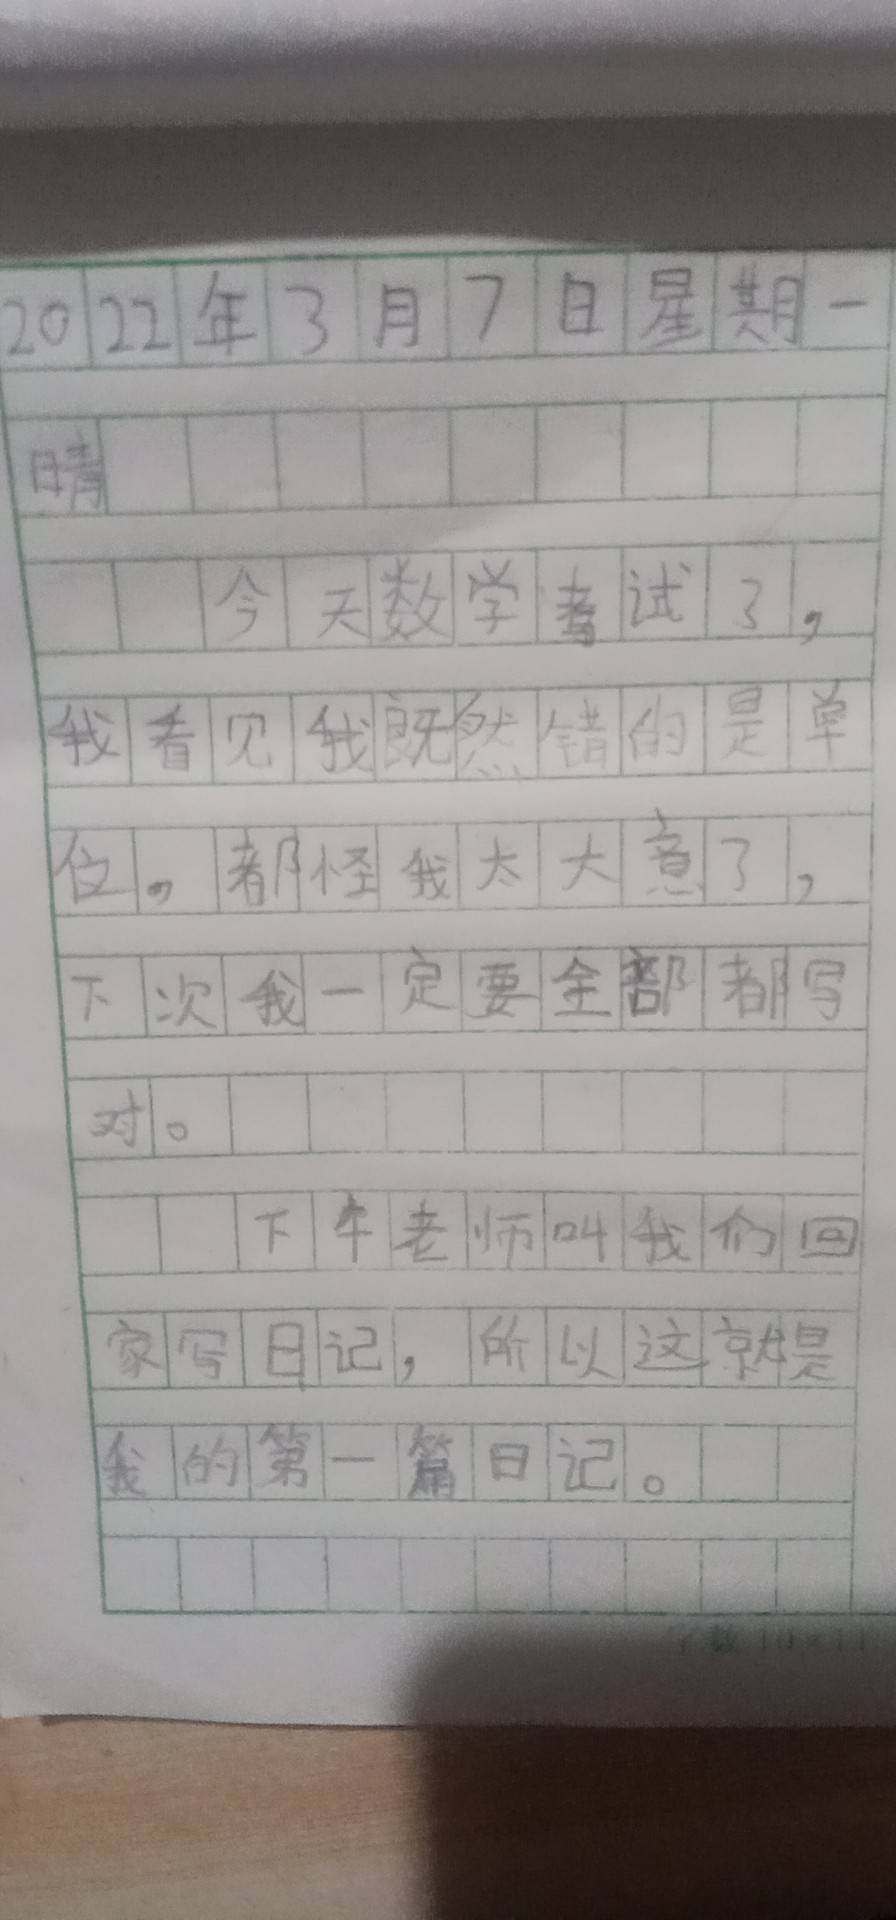 2022年3月7日星期一
晴
今天数学考试了，
我看见我既然错的是单
位，都怪我太大意了，
下次我一定要全部都写
对。
下午老师叫我们回
家写日记，所以这就是
我的第一篇日记。
字数10×11